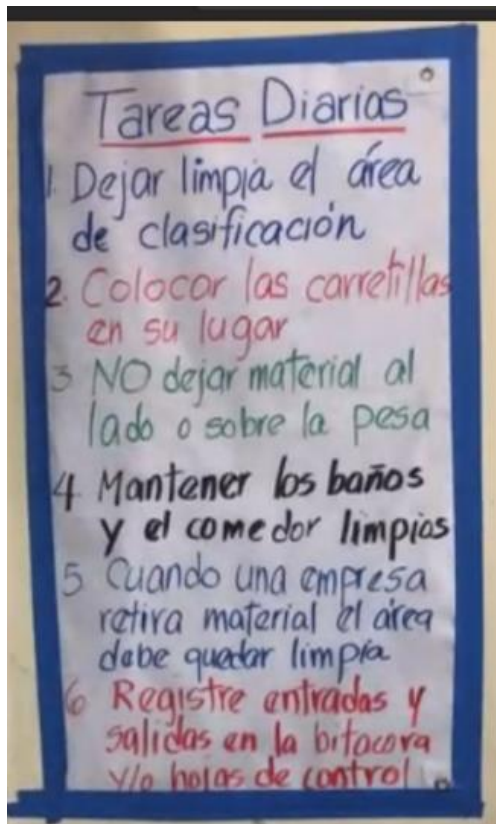 Tareas Diarias
1. Dejar limpia el área
de clasificación
2. Colocar las carretillas
en su lugar
3 NO dejar material al
lado o sobre la pesa
4 Mantener los baños
y el comedor limpios
5 Cuando una empresa
retira material el área
debe quedar limpia
6 Registre entradas y
salidas en la bitacora
y/o hojas de control